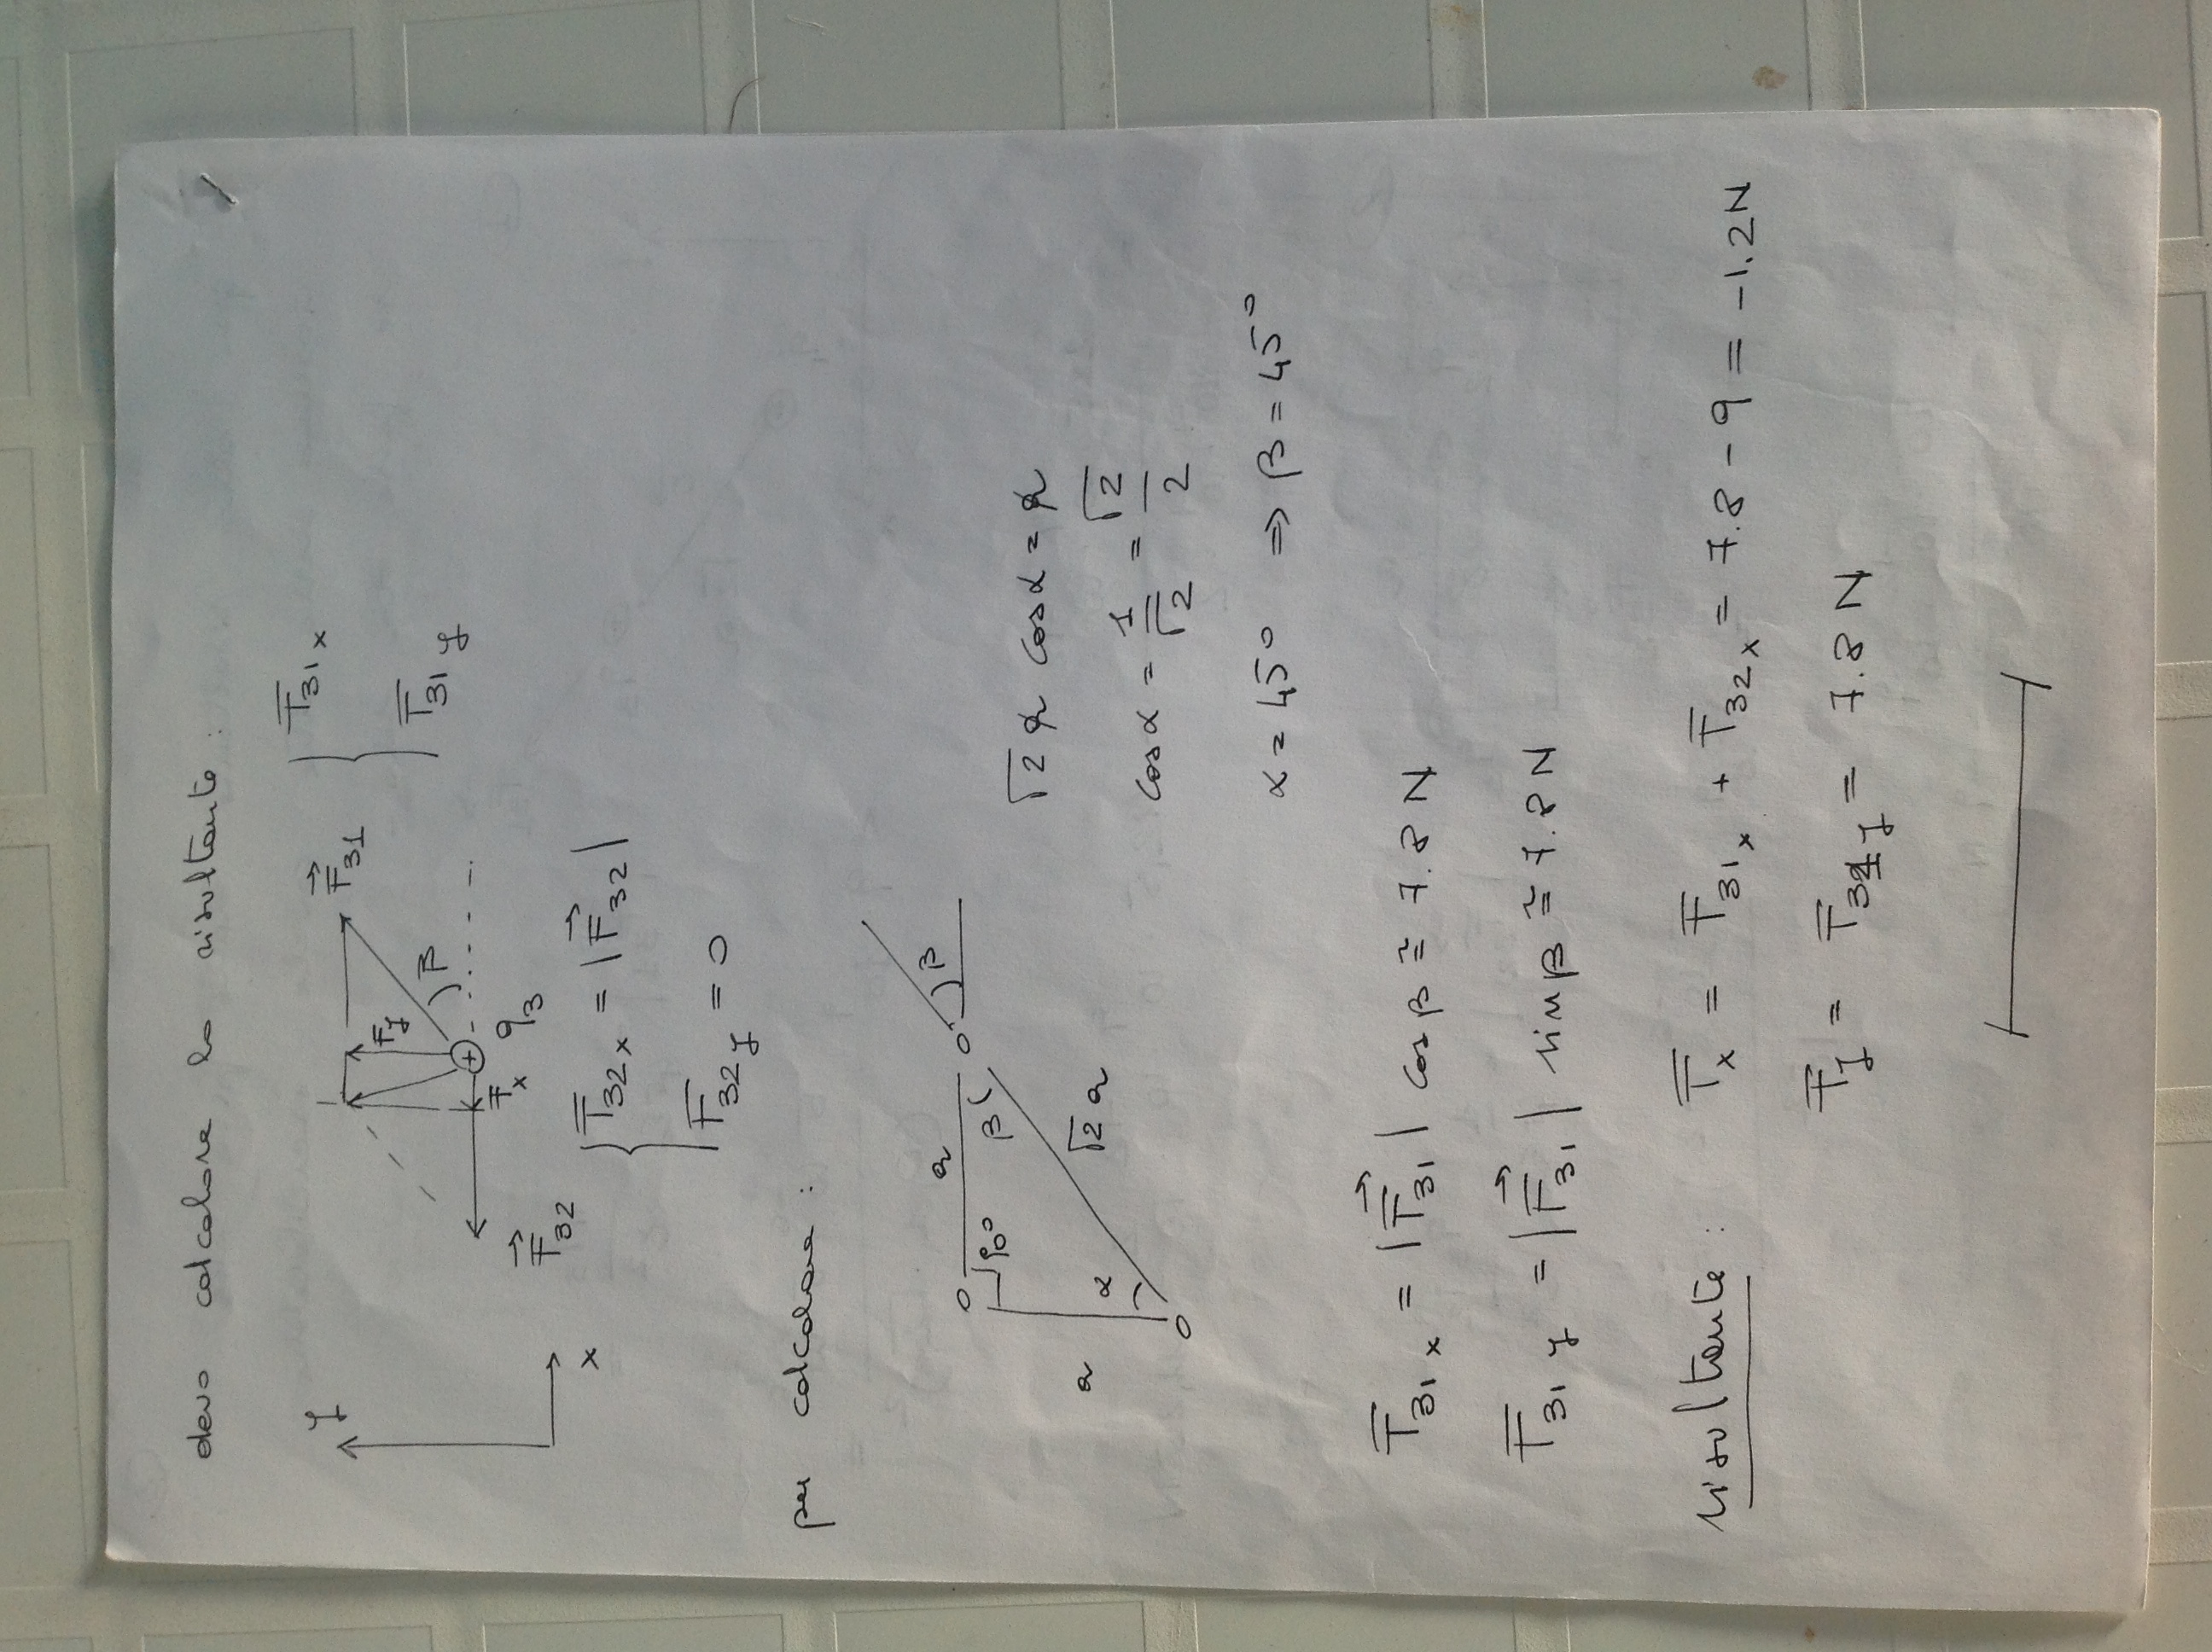 devo calcolare la risultante :
y
F⃗31
F31x
Fy
β
F31y
Fx
q3
F⃗32
x
F32x = |F⃗32|
F32y = 0
per calcolare :
a
β
90°
β
√2 a cos α = a
a
α
√2 a
cos α = 1/√2 = √2/2
α = 45° ⇒ β = 45°
F31x = |F⃗31| cos β ≅ 7.8 N
F31y = |F⃗31| sin β ≅ 7.8 N
risultante : Fx = F31x + F32x = 7.8 - 9 = -1.2 N
Fy = F31y = 7.8 N